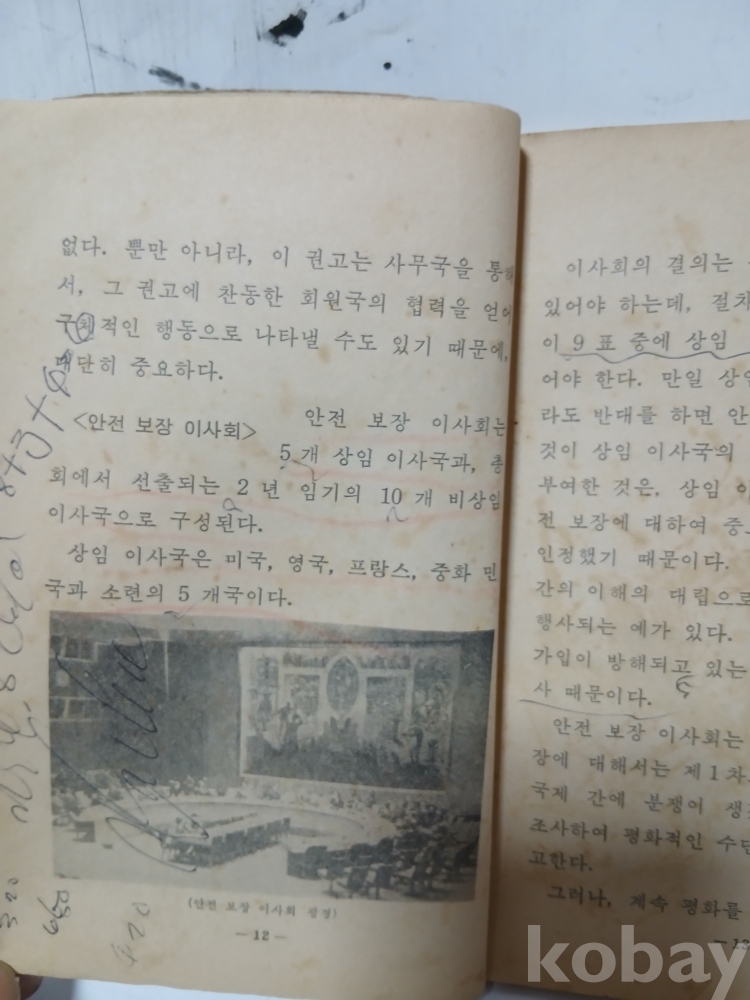 없다. 뿐만 아니라, 이 권고는 사무국을 통해
서, 그 권고에 찬동한 회원국의 협력을 얻어
구체적인 행동으로 나타낼 수도 있기 때문에,
대단히 중요하다.
<안전 보장 이사회> 안전 보장 이사회는
5 개 상임 이사국과, 총
회에서 선출되는 2 년 임기의 10 개 비상임
이사국으로 구성된다.
상임 이사국은 미국, 영국, 프랑스, 중화 민
국과 소련의 5 개국이다.
(안전 보장 이사회 광경)
— 12 —
320
650
420
이사회의 결의는
있어야 하는데, 절차
이 9 표 중에 상임
어야 한다. 만일 상임
라도 반대를 하면 안
것이 상임 이사국의
부여한 것은, 상임 이
전 보장에 대하여 중
인정했기 때문이다.
간의 이해의 대립으로
행사되는 예가 있다.
가입이 방해되고 있는
사 때문이다.
안전 보장 이사회는
장에 대해서는 제 1 차
국제 간에 분쟁이 생
조사하여 평화적인 수단
고한다.
그러나, 계속 평화를
— 13
kobay